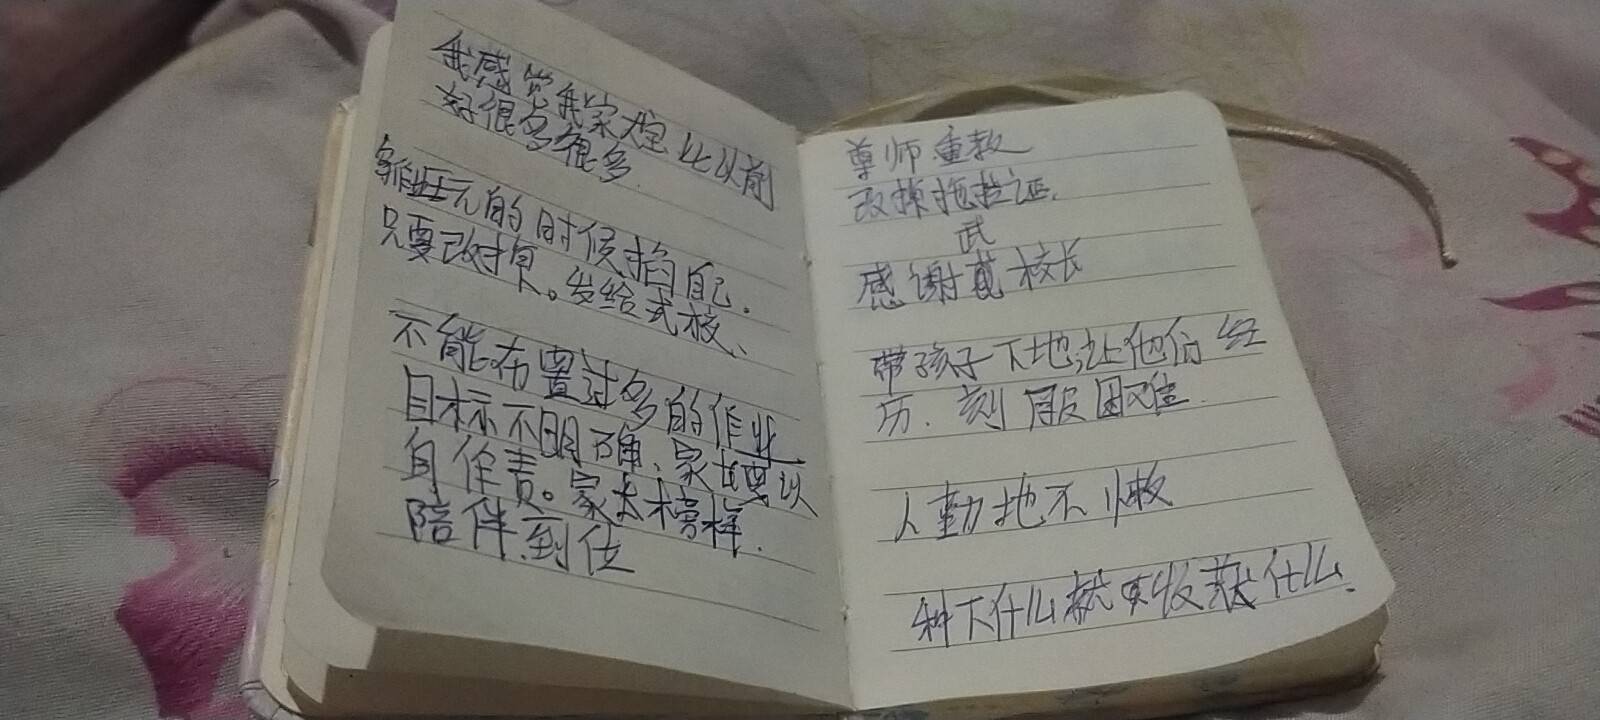 我感觉我家大宝比以前
好很多很多.
写作业玩的时候掐自己.
只要改掉。发给武校、
不能布置过多的作业
目标不明确、家长要以
身作责。家长榜样.
陪伴到位
尊师重教
改掉拖拉症.
武
感谢 校长
带孩子下地让他们经
历.刻服困难.
人勤地不懒
种下什么就要收获什么.